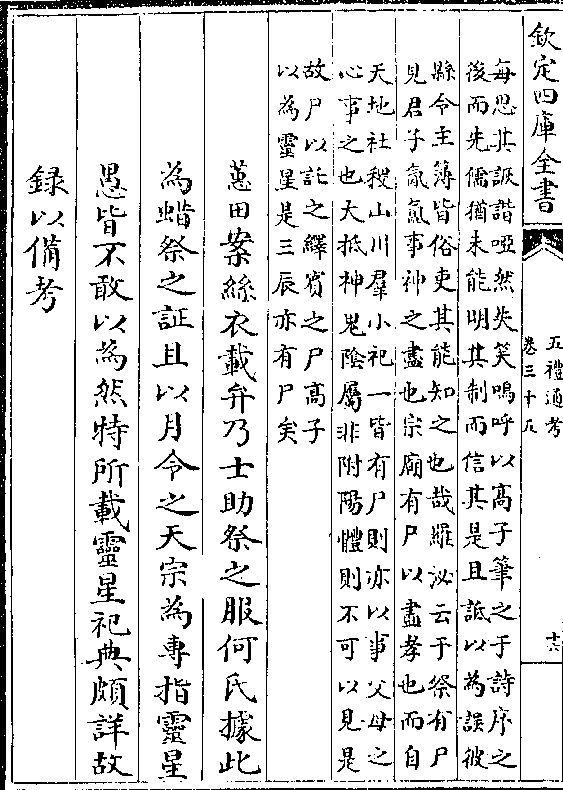 欽定四庫全書
五禮通考
卷三十五
十六
每思其詼諧啞然失笑嗚呼以髙子筆之于詩序之
後而先儒猶未能明其制而信其是且詆以為誤彼
縣令主簿皆俗吏其能知之也哉羅泌云于祭有尸
見君子氣氤事神之盡也宗廟有尸以盡孝也而自
天地社稷山川羣小祀一皆有尸則亦以事父母之
心事之也大抵神鬼陰屬非附陽體則不可以見是
故尸以託之繹賓之尸髙子
以為靈星是三辰亦有尸矣
蕙田案絲衣載弁乃士助祭之服何氏據此
為蜡祭之証且以月令之天宗為専指靈星
愚皆不敢以為然特所載靈星祀典頗詳故
録以備考